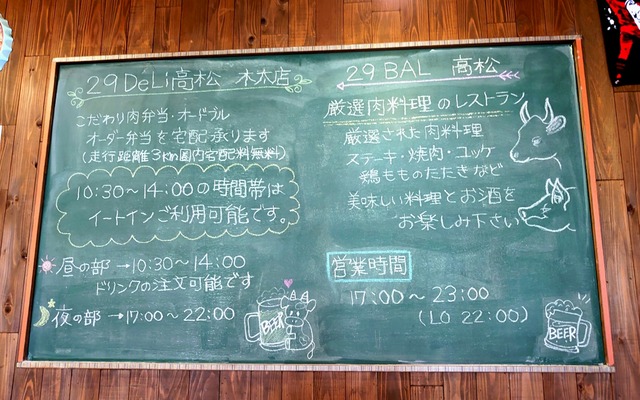 29 DeLi 高松 木太店
こだわり肉弁当・オードブル
オーダー弁当を宅配承ります
(走行距離3km圏内宅配料無料)
10:30〜14:00の時間帯は
イートインご利用可能です。
昼の部 →10:30〜14:00
ドリンクの注文可能です
夜の部 →17:00〜22:00
BEER
29 BAL 高松
厳選肉料理のレストラン
厳選された肉料理
ステーキ・焼肉・ユッケ
鶏もものたたきなど
美味しい料理とお酒を
お楽しみ下さい
営業時間
17:00〜23:00
(LO 22:00)
BEER